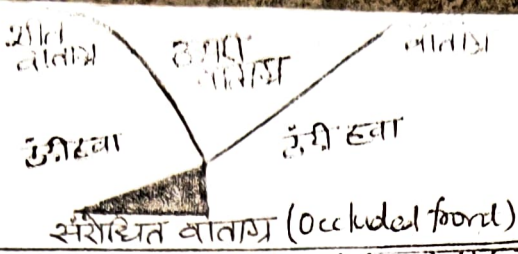 शीत
वाताग्र
वाताग्र
वाताग्र
ठंडी हवा
ठंडी हवा
संरोधित वाताग्र (Occluded frond)